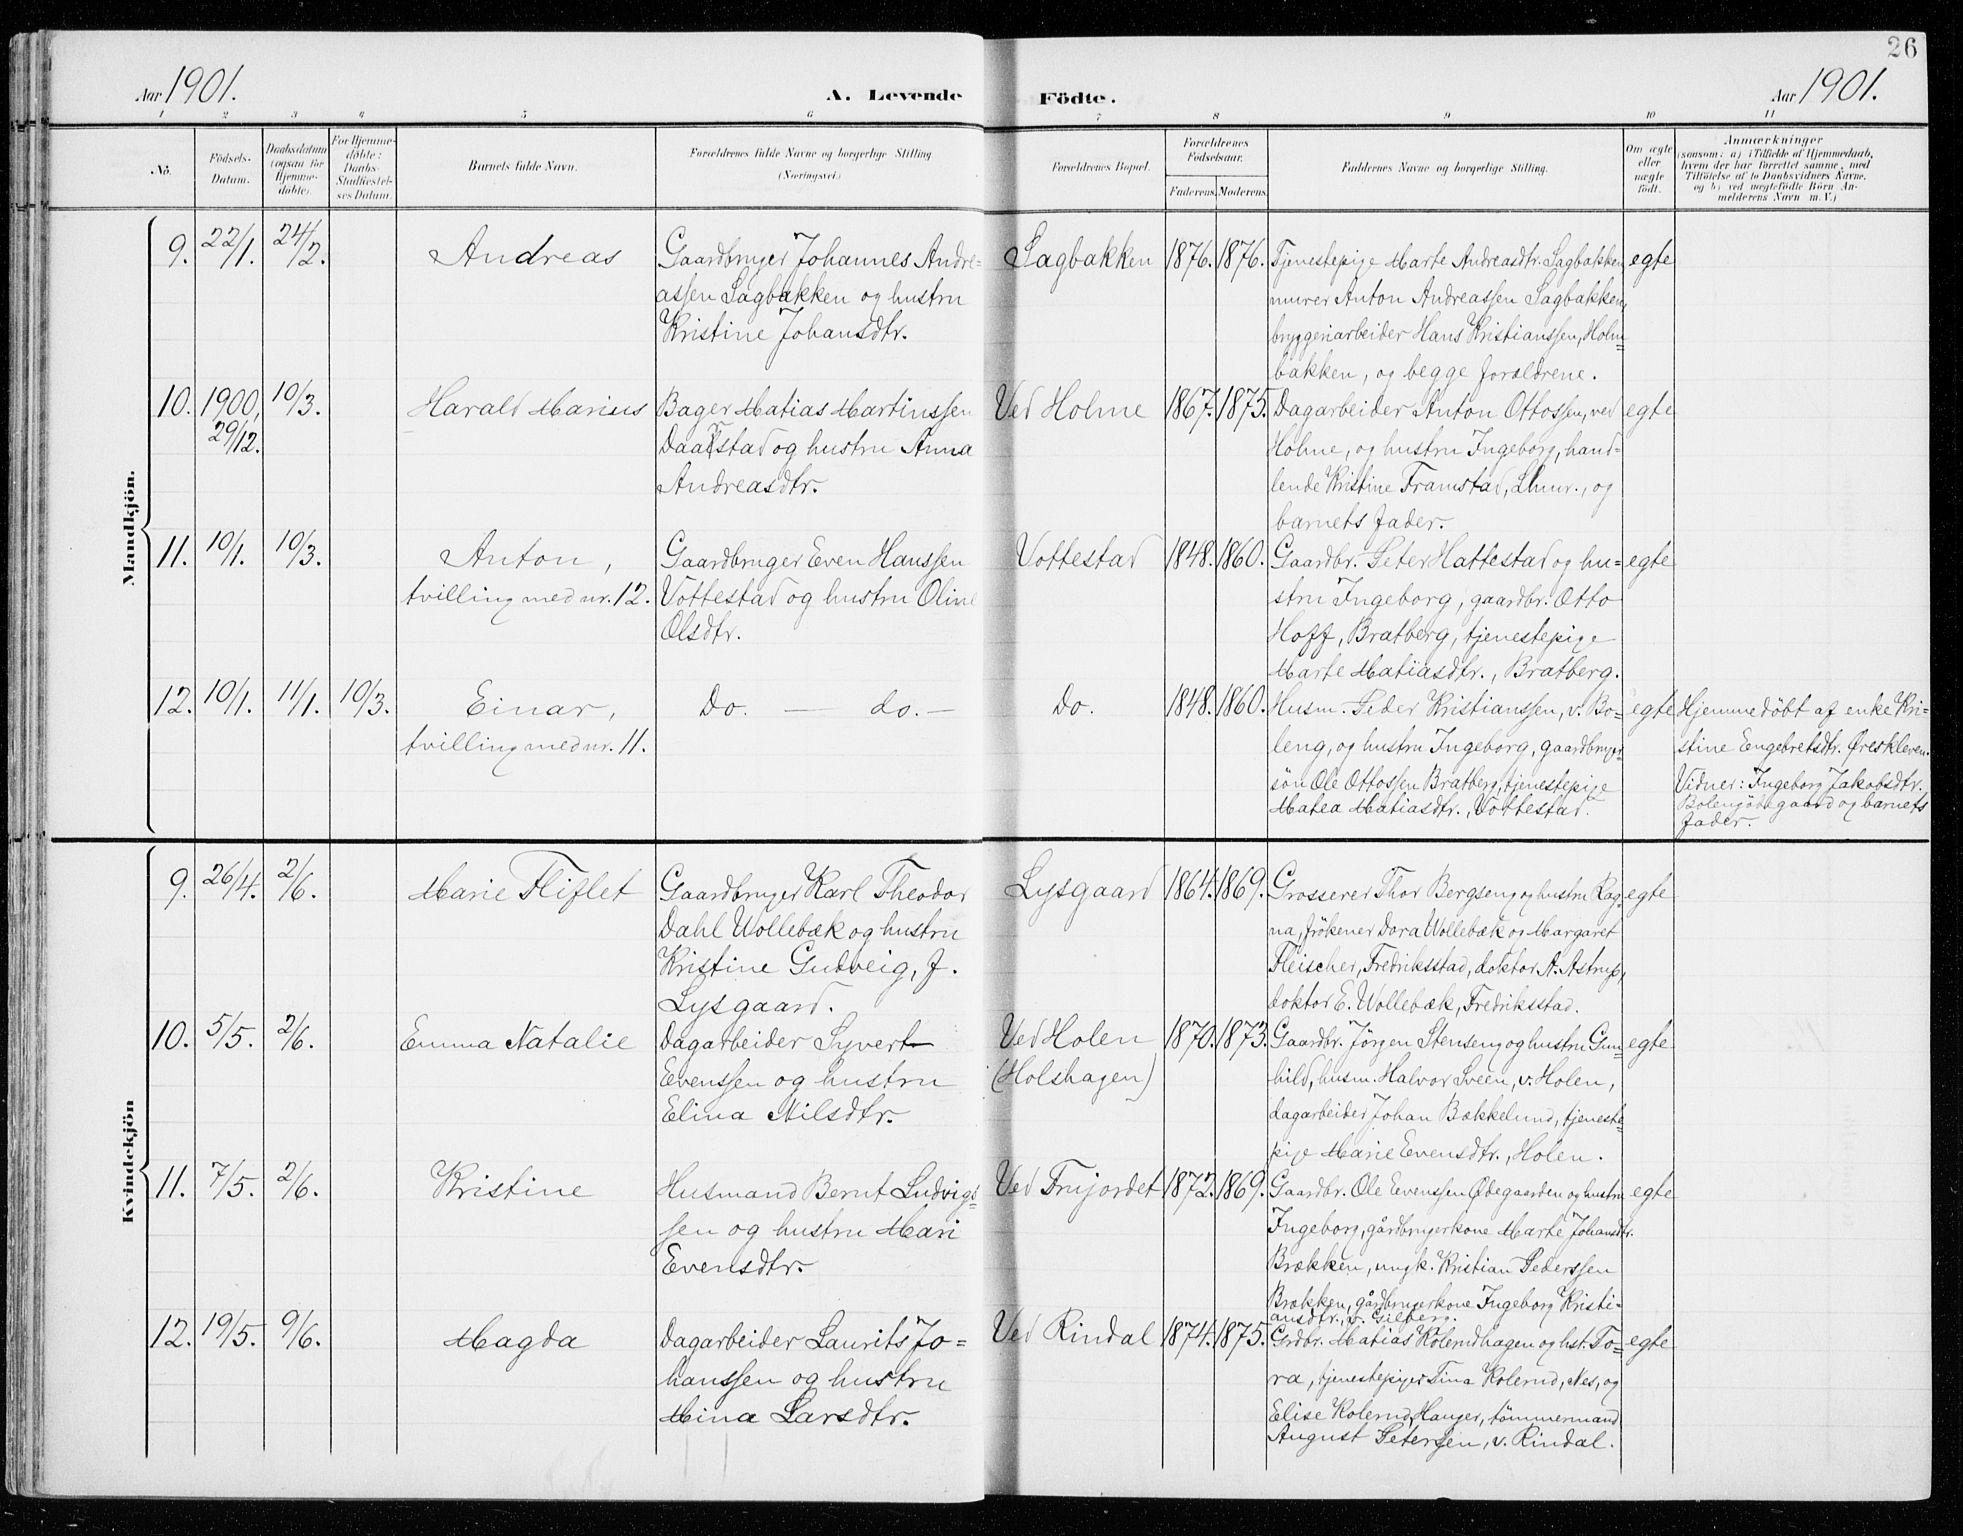 26
Aar 1901.
A. Levende Födte.
Aar 1901.
1 2 3 4 5 6 7 8 9 10 11
No.
Födsels-
Datum.
Daabsdatum
(ogsaa for
Hjemme-
döbte).
For Hjemme-
döbte:
Daabs-
Stadfæstel-
ses Datum.
Barnets fulde Navn.
Forældrenes fulde Navne og borgerlige Stilling
(Næringsvei.)
Forældrenes Bopæl.
Forældrenes
Födselsaar.
Faderens. Moderens.
Faddernes Navne og borgerlige Stilling.
Om ægte
eller
uægte
födt.
Anmærkninger
(saasom: a) i Tilfælde af Hjemmedaab,
hvem der har forrettet samme, med
Tilföielse af to Daabsvidners Navne,
og b) ved uægtefödte Börn An-
melderens Navn m. V.)
Mandkjön.
9. 22/1. 24/2. Andreas
Gaardbruger Johannes Andre-
assen Sagbakken og hustru
Kristine Johansdtr.
Sagbakken 1876. 1876.
Tjenestepige Marte Andreasdtr. Sagbakken
murer Anton Andreassen Sagbakken,
bryggeriarbeider Hans Kristianssen, Holm-
bakken, og begge forældrene.
egte
10. 1900, 29/12. 10/3. Harald Marius
Bager Matias Martinssen
Daalstad og hustru Anna
Andreasdtr.
Ved Holme 1867. 1875.
Dagarbeider Anton Ottossen, ved
Holme, og hustru Ingeborg, hand-
lende Kristine Framstad, Lhmr., og
barnets fader.
egte
11. 10/1. 10/3. Anton,
tvilling med nr. 12.
Gaardbruger Even Hanssen
Vottestad og hustru Oline
Olsdtr.
Vottestad 1848. 1860.
Gaardbr. Peter Hattestad og hu-
stru Ingeborg, gaardbr. Otto
Hoff, Bratberg, tjenestepige
Marte Matiasdtr., Bratberg.
egte
12. 10/1. 11/1. 10/3. Einar,
tvilling med nr. 11.
Do. — do. —
Do. 1848. 1860.
Husm. Peder Kristianssen, v. Bo-
leng, og hustru Ingeborg, gaardbruger-
sön Ole Ottossen Bratberg, tjenestepige
Matea Matiasdtr., Vottestad.
egte
Hjemmedöbt af enke Kri-
stine Engebretsdtr. Øreskleven.
Vidner: Ingeborg Jakobsdtr.
gaard og barnets
fader.
Kvindekjön
9. 26/4. 2/6. Marie Fliflet
Gaardbruger Karl Theodor
Dahl Wollebæk og hustru
Kristine Gudveig, f.
Lysgaard.
Lysgaard 1864. 1869.
Grosserer Thor Bergseng og hustru Rag-
na, frökener Dora Wollebæk og Margaret
Fleischer, Fredriksstad, doktor A. Astrup,
doktor E. Wollebæk, Fredriksstad.
egte
10. 5/5. 2/6. Emma Natalie
Dagarbeider Syvert
Evenssen og hustru
Elina Nilsdtr.
Ved Holen
(Holshagen)
1870. 1873.
Gaardbr. Jörgen Stenseng og hustru Gun-
hild, husm. Halvor Sveen, v. Holen,
dagarbeider Johan Bækkelund, tjeneste-
pige Marie Evensdtr., Holen.
egte
11. 7/5. 2/6. Kristine
Husmand Bernt Ludvigs-
sen og hustru Mari
Evensdtr.
Ved Frijordet 1872. 1869.
Gaardbr. Ole Evenssen Ødegaarden og hustru
Ingeborg, gårdbrugerkone Marte Johansdtr.
Brækken, ungk. Kristian Pederssen
Brækken, gårdbrugerkone Ingeborg Kristi-
ansdtr., v. Gilberg.
egte
12. 19/5. 9/6. Magda
Dagarbeider Laurits Jo-
hanssen og hustru
Mina Larsdtr.
Ved Rindal 1874. 1875.
Grdbr. Matias Kolerudhagen og hst. To-
ra, tjenestepiger Tina Kolerud, Nes, og
Elise Kolerud, Hauger, tömmermand
August Petersen, v. Rindal.
egte